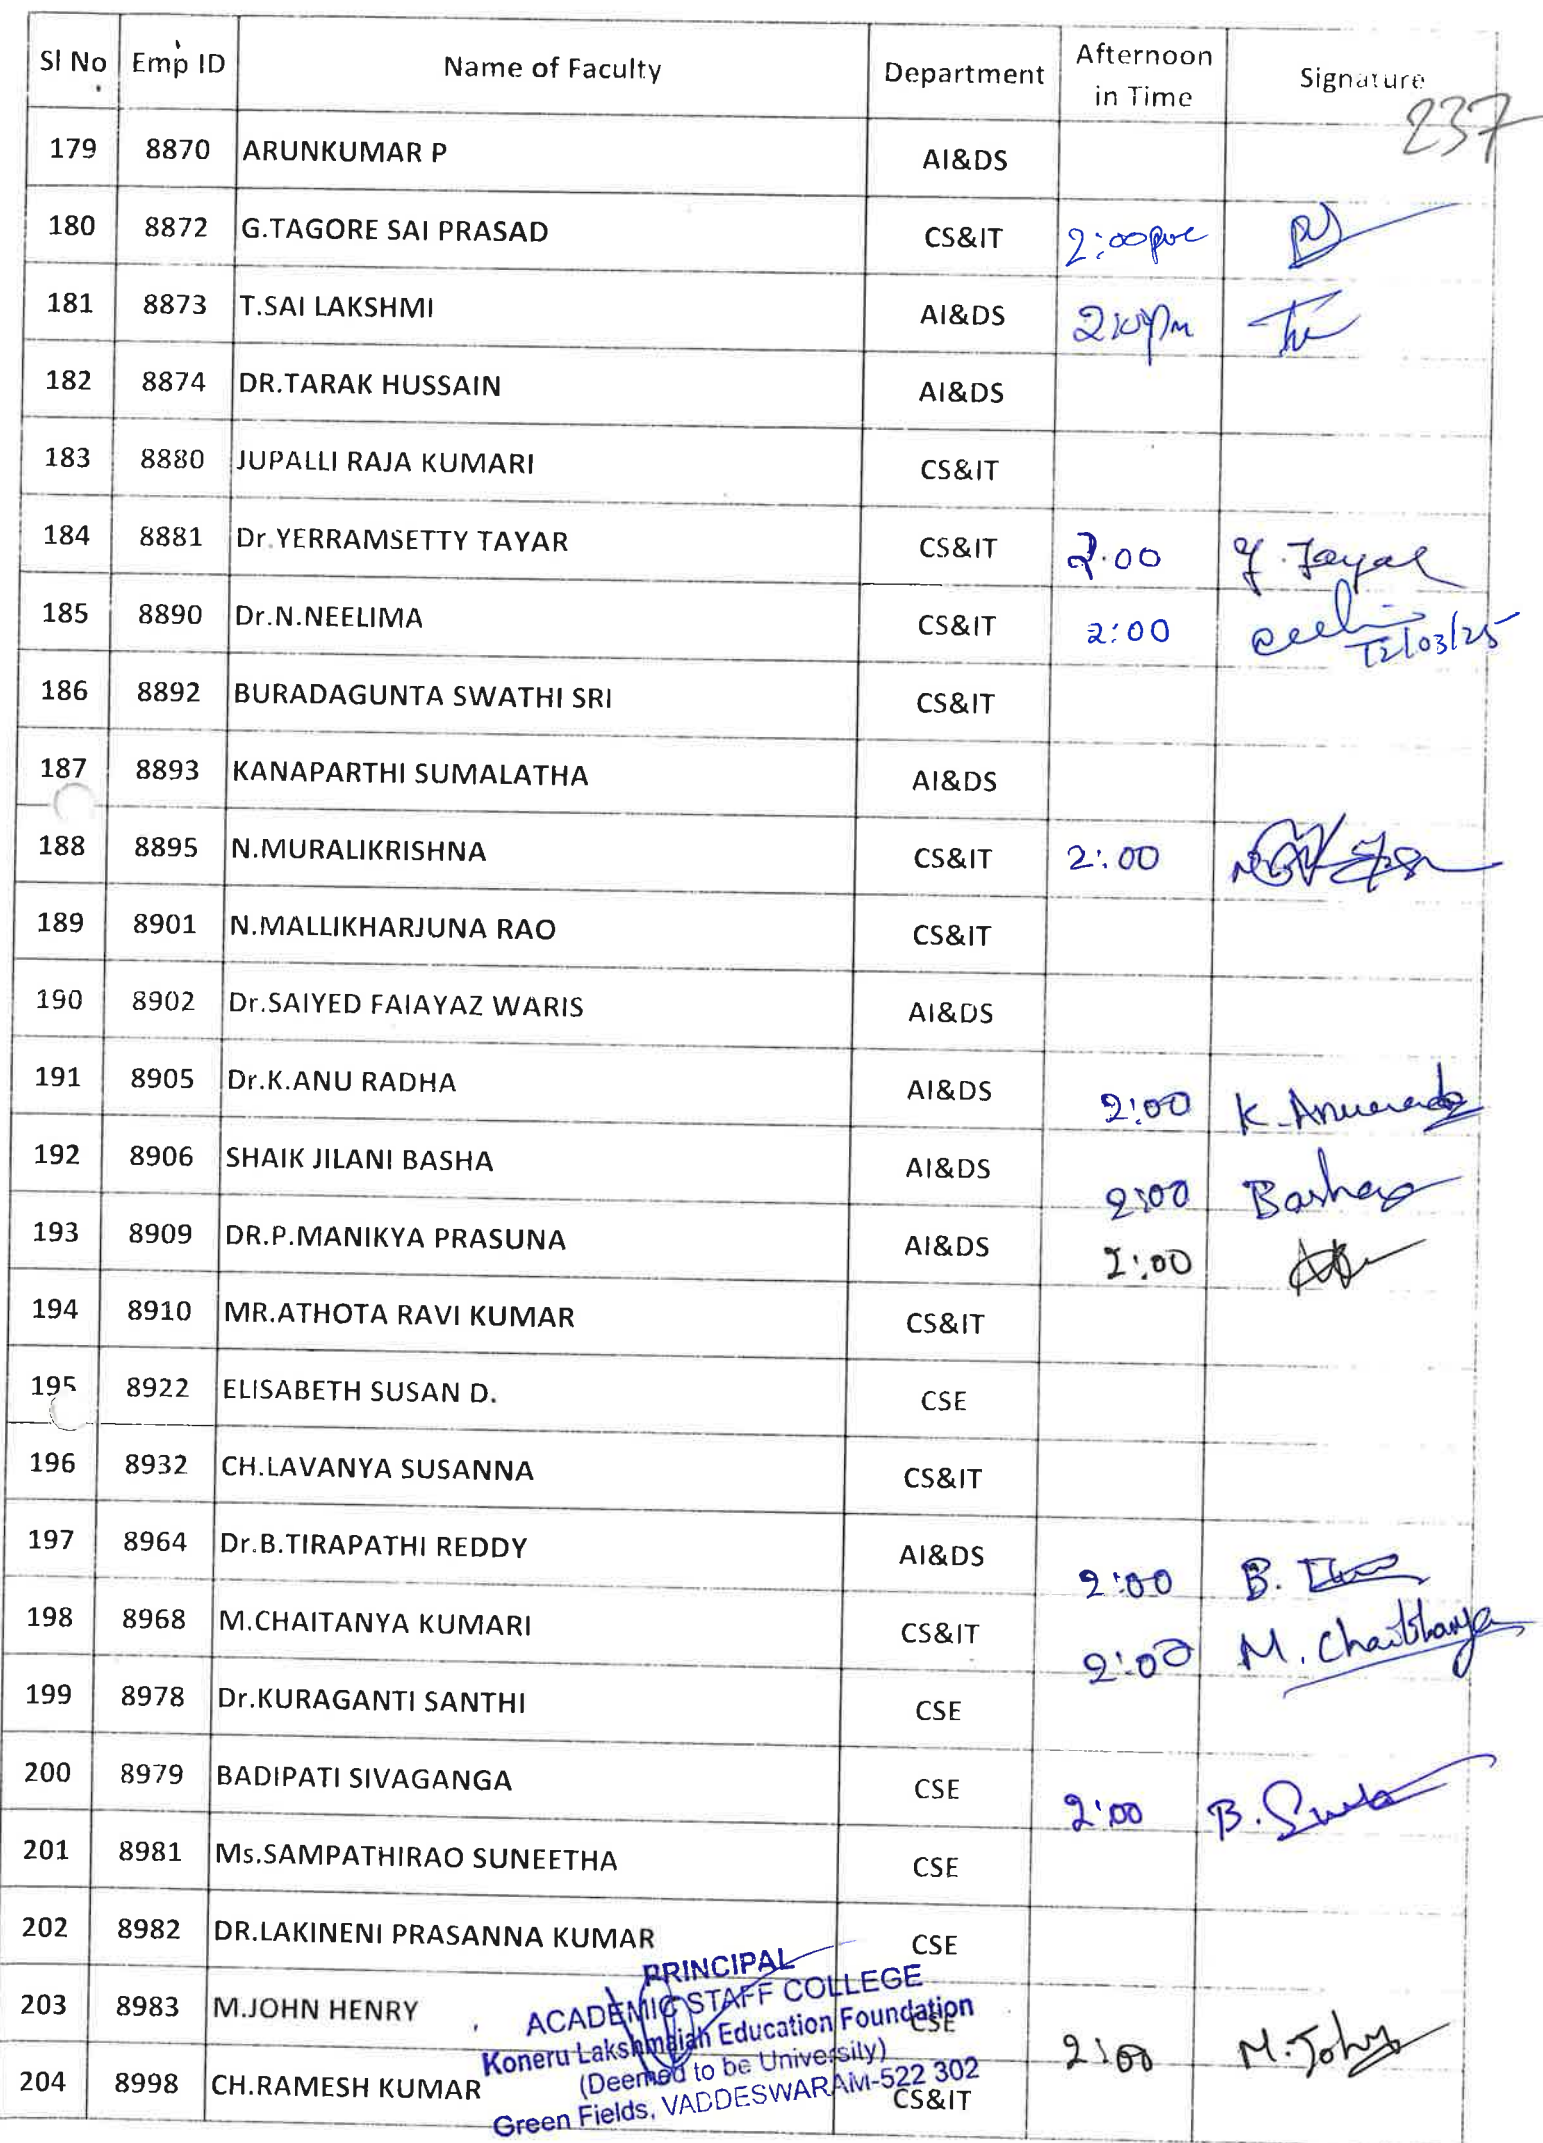 Sl No Emp ID Name of Faculty Department Afternoon in Time Signature
237
179 8870 ARUNKUMAR P AI&DS
180 8872 G.TAGORE SAI PRASAD CS&IT 2:00pm
181 8873 T.SAI LAKSHMI AI&DS
182 8874 DR.TARAK HUSSAIN AI&DS
183 8880 JUPALLI RAJA KUMARI CS&IT
184 8881 Dr.YERRAMSETTY TAYAR CS&IT 2.00 Y. Tayar
185 8890 Dr.N.NEELIMA CS&IT 2:00 12/03/25
186 8892 BURADAGUNTA SWATHI SRI CS&IT
187 8893 KANAPARTHI SUMALATHA AI&DS
188 8895 N.MURALIKRISHNA CS&IT 2:00
189 8901 N.MALLIKHARJUNA RAO CS&IT
190 8902 Dr.SAIYED FAIAYAZ WARIS AI&DS
191 8905 Dr.K.ANU RADHA AI&DS 2:00 K.
192 8906 SHAIK JILANI BASHA AI&DS 2:00 Basha
193 8909 DR.P.MANIKYA PRASUNA AI&DS 2:00
194 8910 MR.ATHOTA RAVI KUMAR CS&IT
195 8922 ELISABETH SUSAN D. CSE
196 8932 CH.LAVANYA SUSANNA CS&IT
197 8964 Dr.B.TIRAPATHI REDDY AI&DS 2:00 B.
198 8968 M.CHAITANYA KUMARI CS&IT 2:00 M. Chaithanya
199 8978 Dr.KURAGANTI SANTHI CSE
200 8979 BADIPATI SIVAGANGA CSE 2:00 B.
201 8981 Ms.SAMPATHIRAO SUNEETHA CSE
202 8982 DR.LAKINENI PRASANNA KUMAR CSE
203 8983 M.JOHN HENRY CSE 2:00 M. John
204 8998 CH.RAMESH KUMAR CS&IT
PRINCIPAL
ACADEMIC STAFF COLLEGE
Koneru Lakshmaiah Education Foundation
(Deemed to be University)
Green Fields, VADDESWARAM-522 302